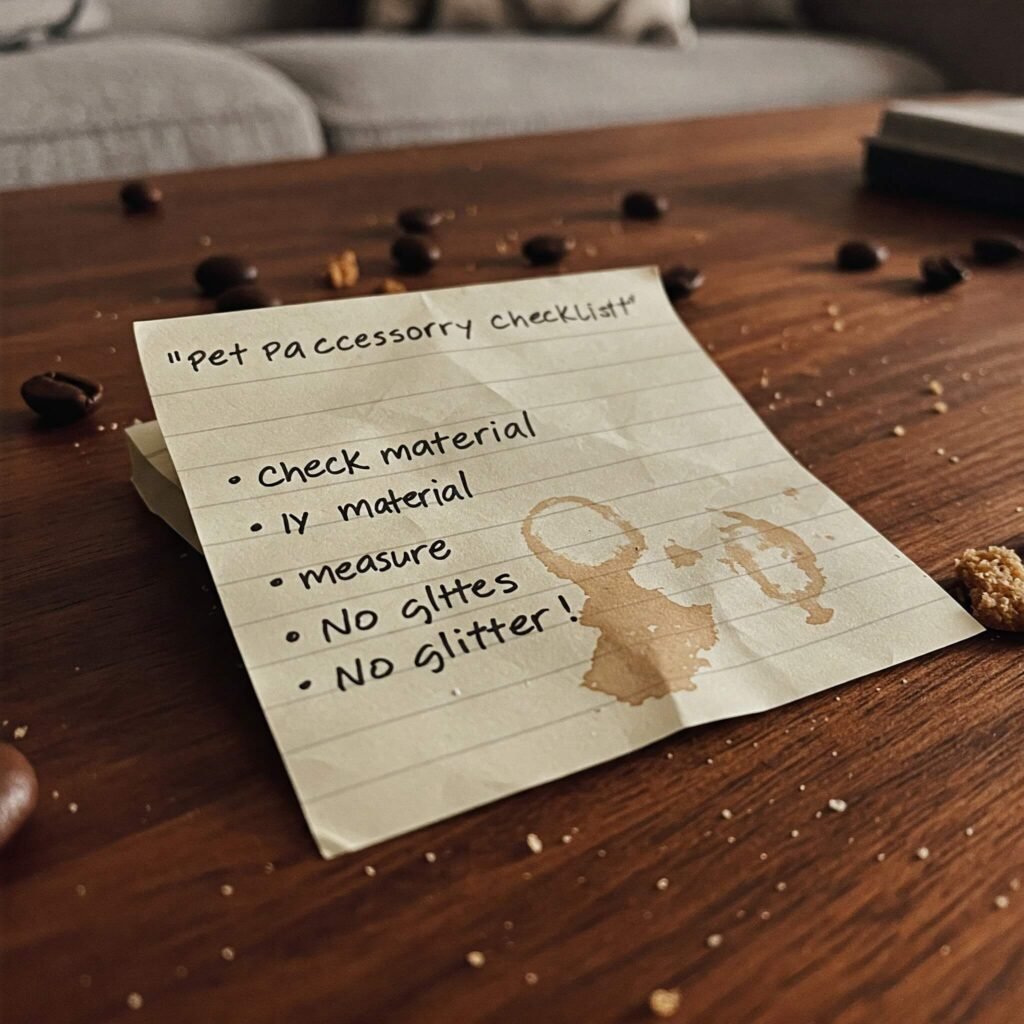 "Pet Paccessorry checkListt"
• Check material
• ly material
• measure
• No glttes
• No glitter!